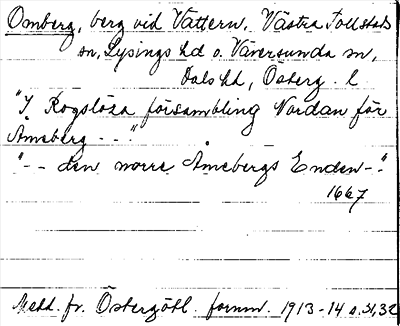 Omberg, berg vid Vättern. Västra Tollstads
sn, Lysings hd o. Väversunda sn,
Dals hd, Österg. l.
"I Rogslösa försambling Nordan för
Åmeberg - - -"
"- - den norre Åmebergs Enden - -"
1667
Medd. fr. Östergötl. fornm. 1913-14 s. 31, 32